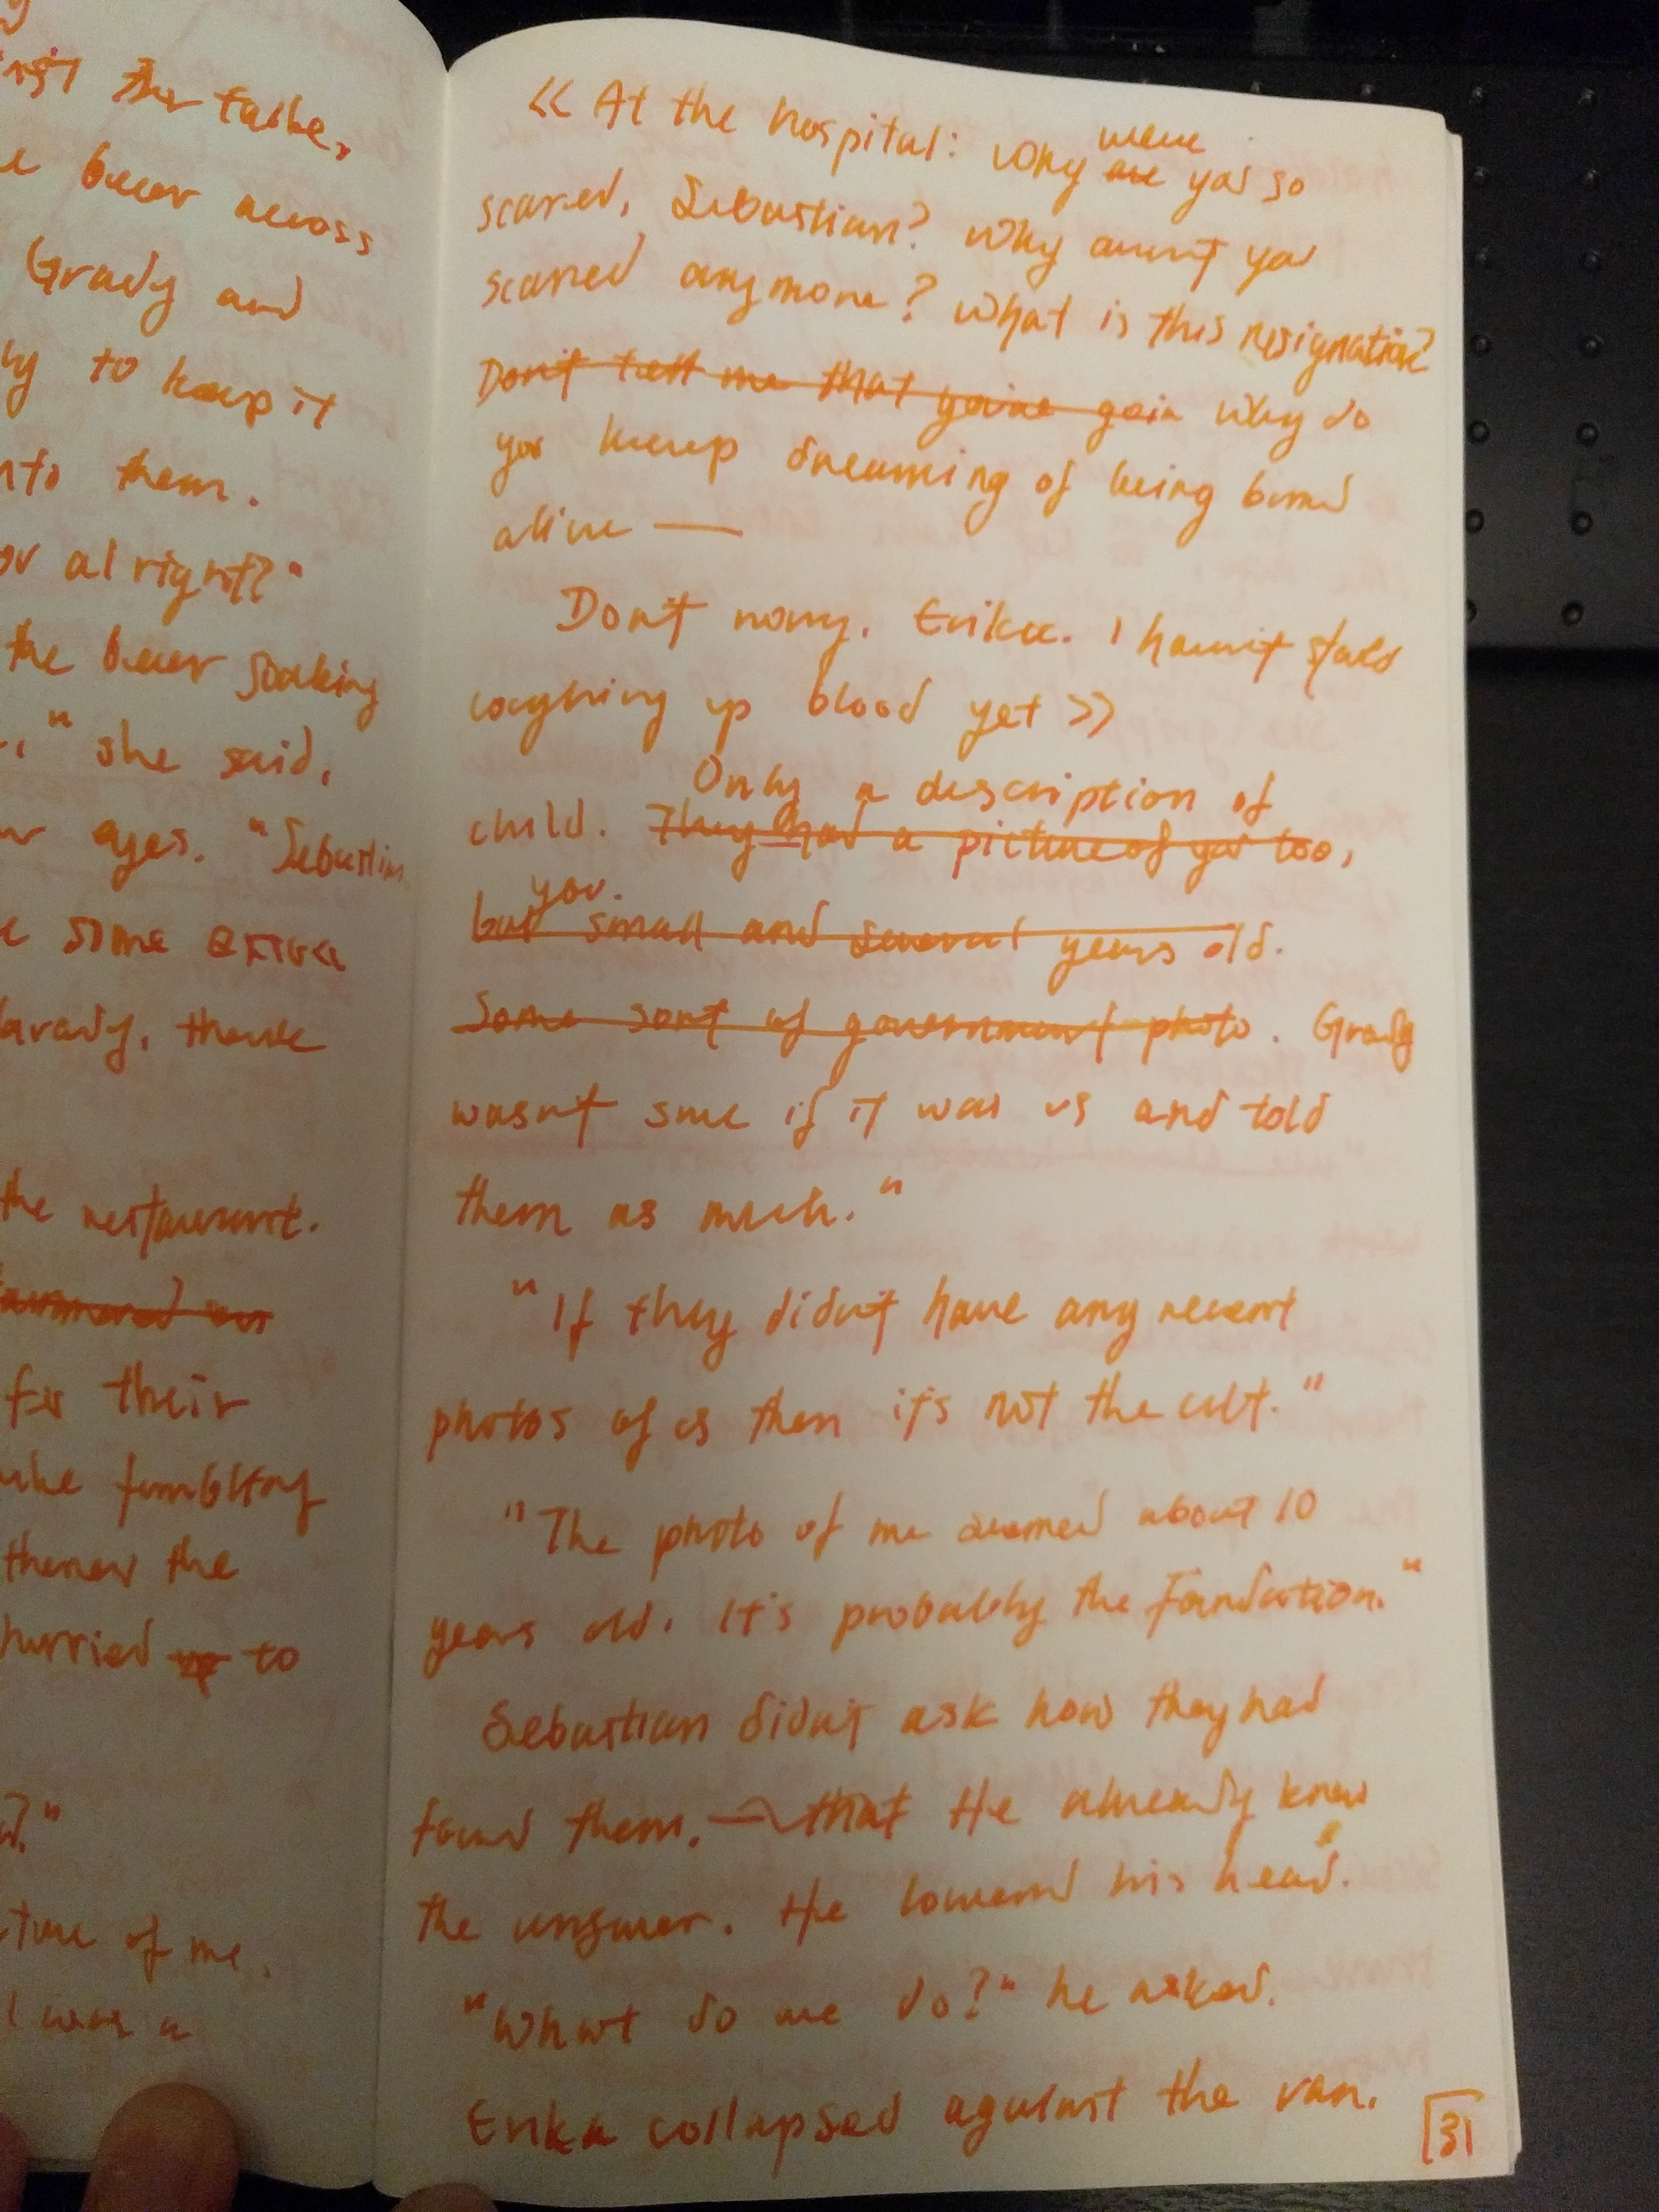 the table,
beer across
Grady and
to keep it
them.
alright?"
the beer soaking
" she said,
ages. "Sebastian
some extra
Grady, thank
the restaurant.
for their
fumbling
threw the
hurried up to
of me.
I was a
<< At the hospital: why were
are you so
scared, Sebastian? Why aren't you
scared anymore? What is this resignation?
Don't tell me that you're goin why do
you keep dreaming of being buried
alive —
Don't worry, Erika. I haven't started
coughing up blood yet >>
Only a description of
child. They had a picture of you too,
you.
but small and several years old.
Some sort of government photo. Grady
wasn't sure if it was us and told
them as much."
"If they didn't have any recent
photos of us then it's not the cult."
"The photo of me seemed about 10
years old. It's probably the Foundation."
Sebastian didn't ask how they had
found them. — that He already knew
the answer. He lowered his head.
"What do we do?" he asked.
Erika collapsed against the van.
31